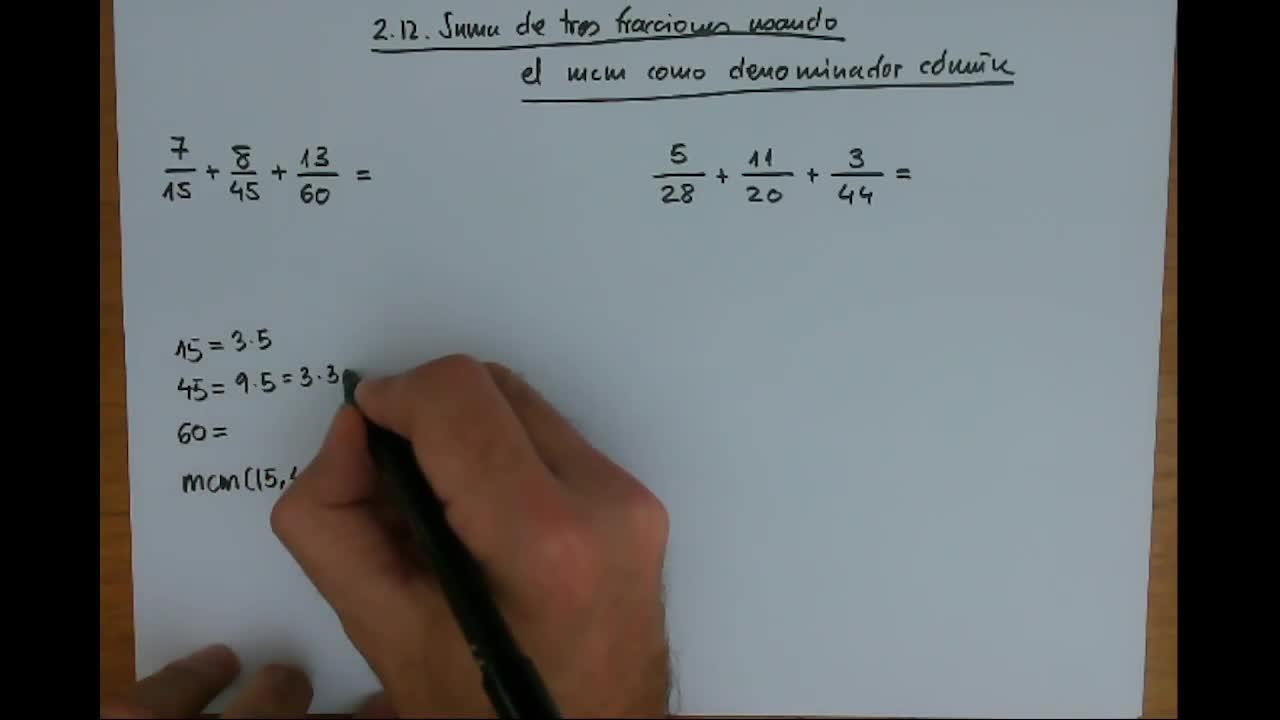 2.12. Suma de tres fracciones usando
el mcm como denominador común
7/15 + 8/45 + 13/60 =
5/28 + 11/20 + 3/44 =
15 = 3·5
45 = 9·5 = 3·3
60 =
mcm(15,